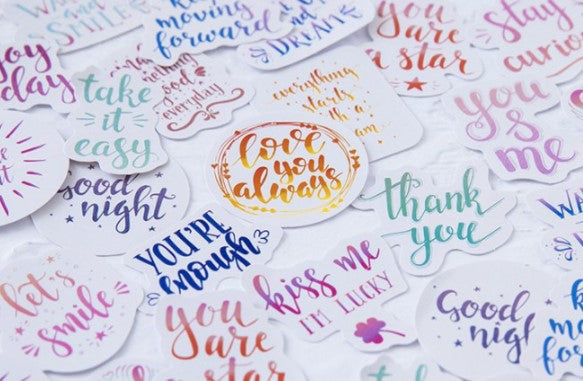 keep
moving
forward
and
DREAM
you
are
a star
stay
curious
enjoy
today
take
it
easy
nothing
good
everyday
everything
starts
with a
love
you
always
you
&
me
good
night
YOU'RE
enough
thank
you
kiss me
I'M LUCKY
let's
smile
you
are
a star
Good
night
moving
forward